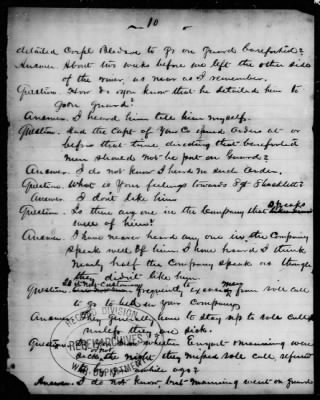 10
detailed Corpl Bledsoe to go on Guard barefooted?
Answer. About two weeks before we left the other side
of the river, as near as I remember.
Question. How do you know that he detailed him to
go on guard?
Answer. I heard him tell him myself.
Question. Had the Capt of Your Co issued Orders at or
before that time directing that barefooted
men should not be put on Guard?
Answer. I do not know I heard no such Order.
Question. What is Your feelings towards Sgt Shacklett?
Answer. I don't like him
Question. Is there any one in the Company that speaks
well of him?
Answer. I have never heard any one in the Company
speak well of him I have heard I think
nearly half the Company speak as though
they didn't like him
Question. Is it not customary frequently to excuse men from roll call
to go to bed in Your Company
Answer. They generally have to stay up to roll call
unless they are sick.
Question. Do you know whether Enyart & Manning were
sick the night they missed roll call, referred
to a while ago?
Answer. I do not know, but Manning went on Guard
RECORD DIVISION
REBEL ARCHIVES
WAR DEPARTMENT